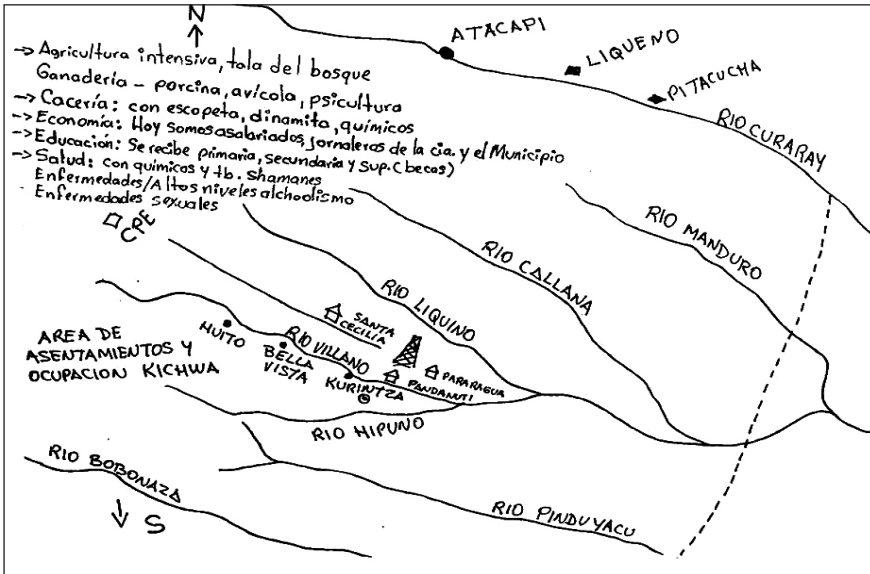 N
ATACAPI
LIQUENO
PITACUCHA
RIO CURARAY
→ Agricultura intensiva, tala del bosque
Ganadería - porcina, avícola, psicultura
→ Cacería: con escopeta, dinamita, químicos
→ Economía: Hoy somos asalariados, jornaleros de la cia. y el Municipio
→ Educación: Se recibe primaria, secundaria y Sup. (becas)
→ Salud: con químicos y tb. shamanes
Enfermedades/Altos niveles alchoolismo
Enfermedades sexuales
CPE
RIO MANDURO
RIO CALLANA
RIO LIQUINO
SANTA
CECILIA
HUITO
RIO VILLANO
BELLA
VISTA
KURINTZA
PARARAGUA
PANDANUTI
AREA DE
ASENTAMIENTOS Y
OCUPACION KICHWA
RIO HIPUNO
RIO BOBONAZA
S
RIO PINDUYACU